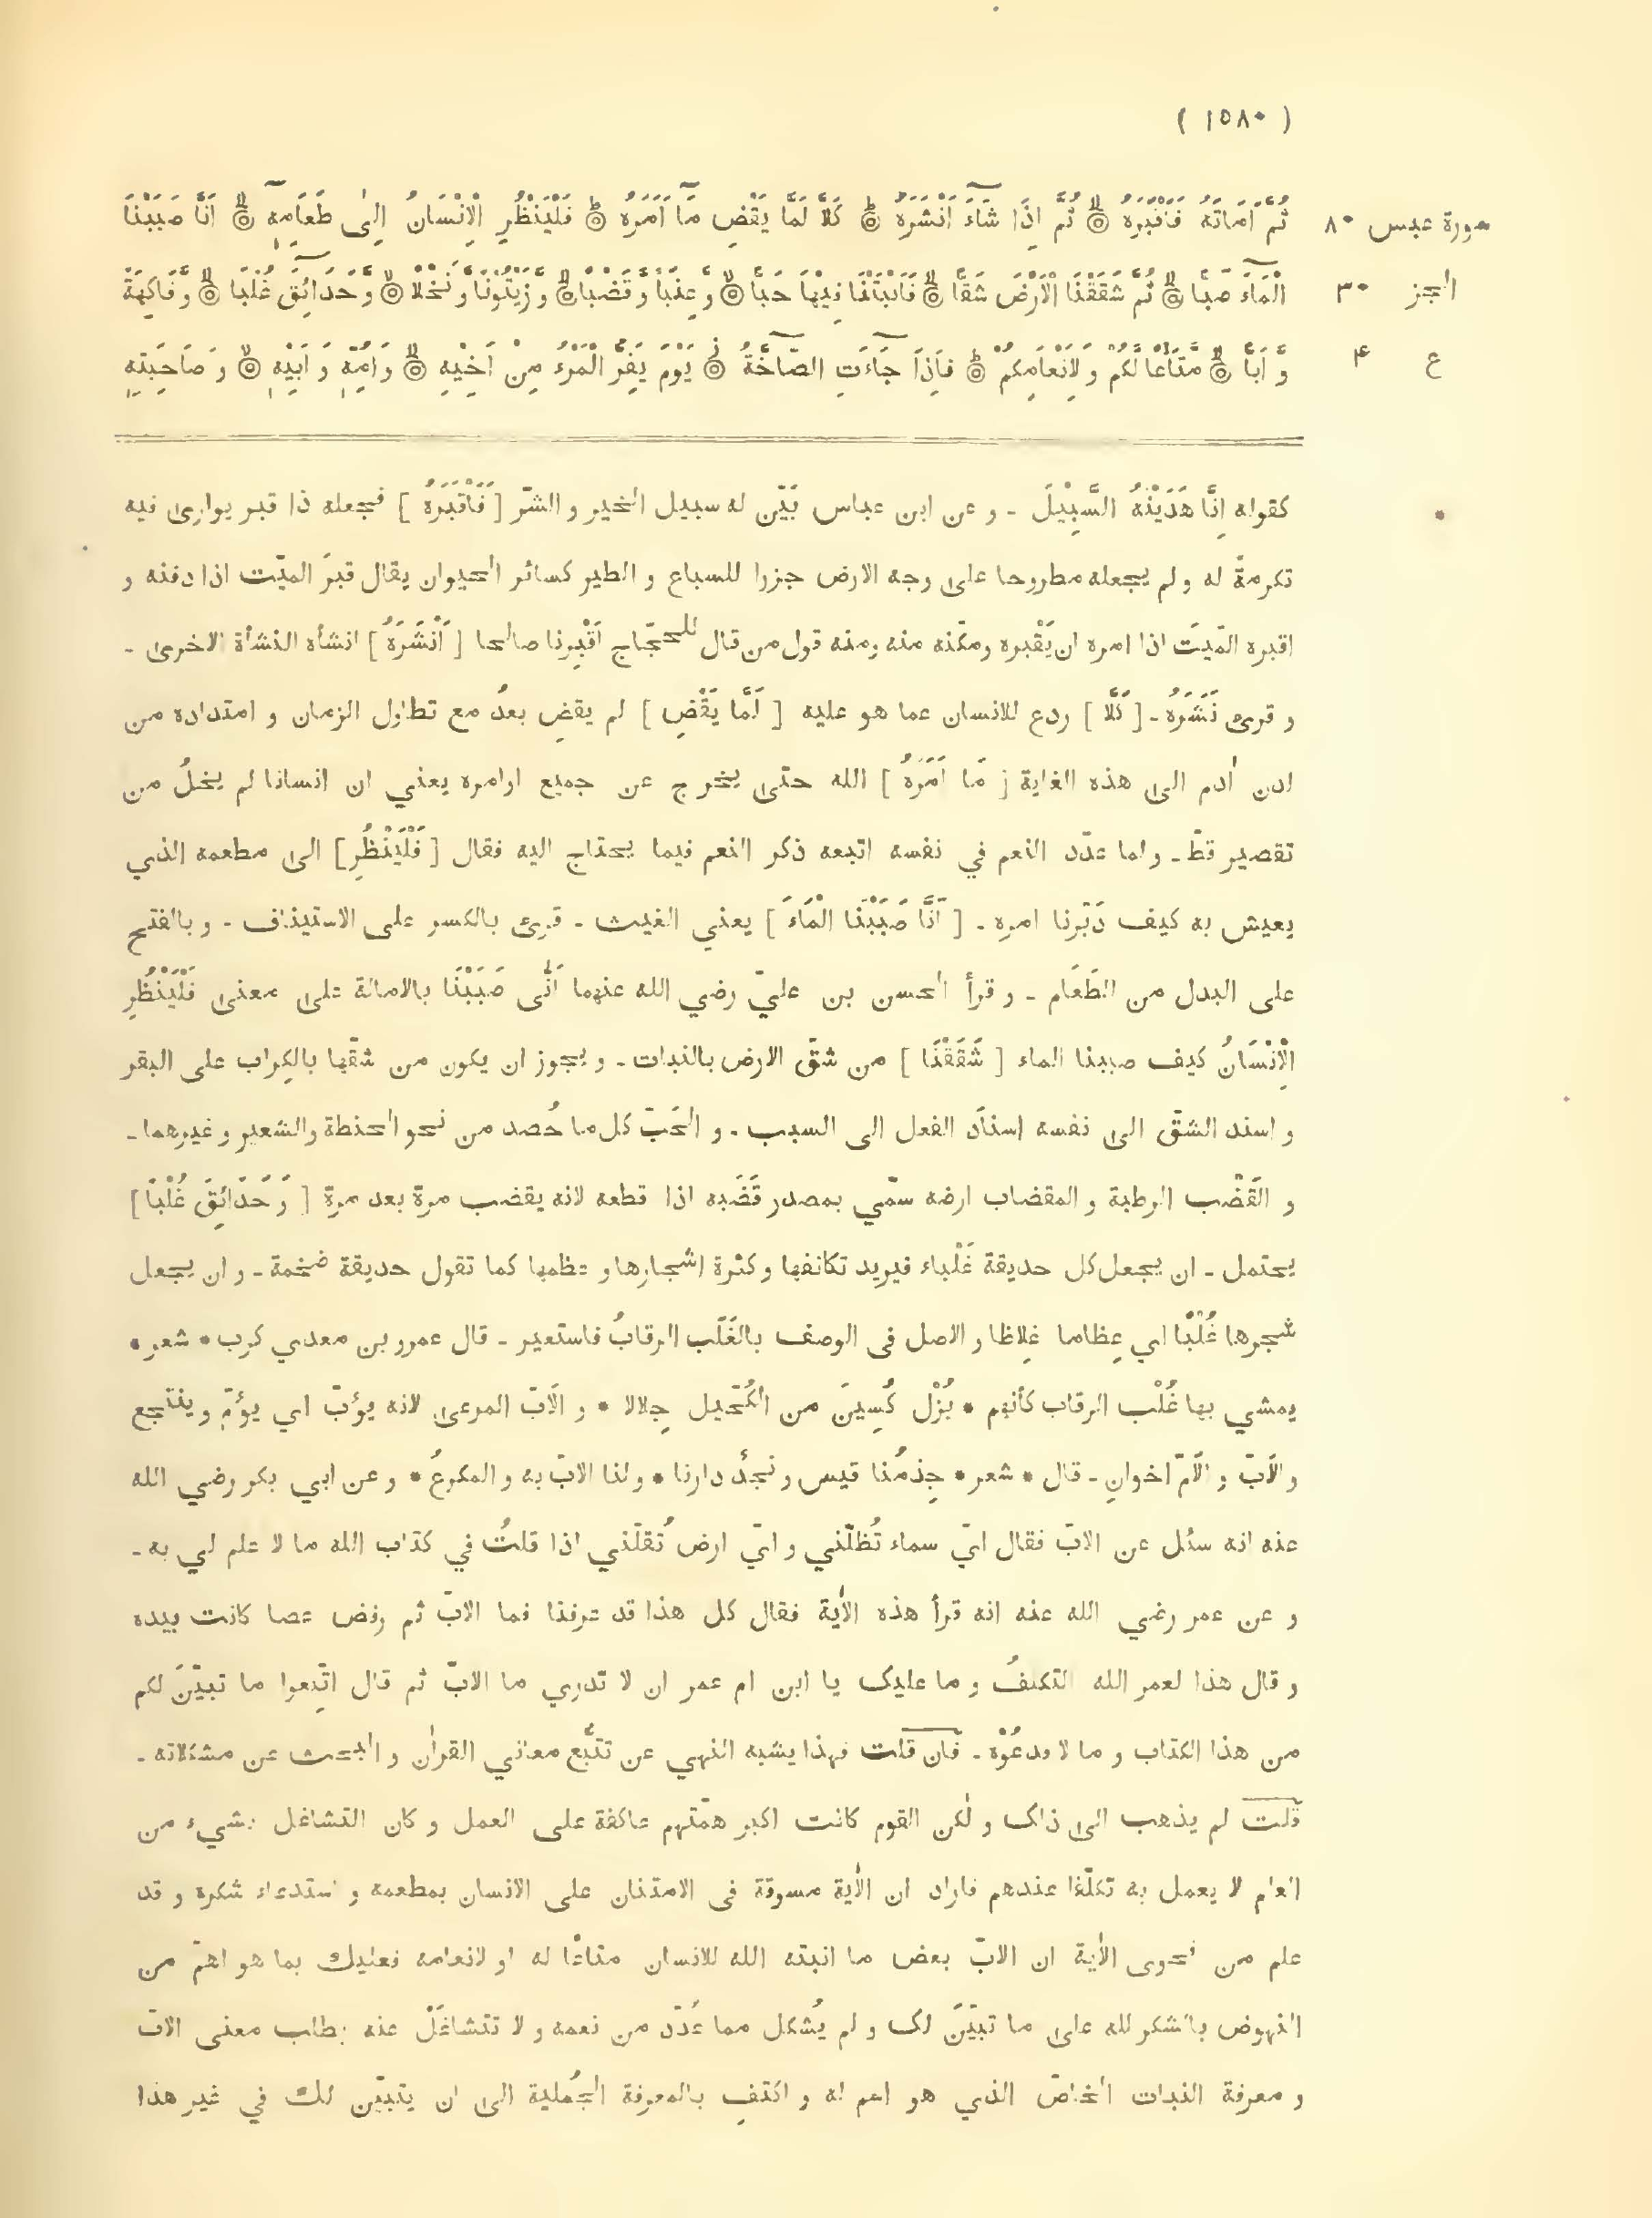 ( ١٥٨٠ )
سورة عبس ٨٠
الجز ٣٠
ع ۴
ثُمَّ اَمَاتَهُ فَاَقْبَرَهُ ۞ ثُمَّ اِذَا شَآءَ اَنْشَرَهُ ۞ كَلَّا لَمَّا يَقْضِ مَآ اَمَرَهُ ۞ فَلْيَنْظُرِ الْاِنْسَانُ اِلٰى طَعَامِهٖٓ ۞ اَنَّا صَبَبْنَا
الْمَآءَ صَبًّا ۞ ثُمَّ شَقَقْنَا الْاَرْضَ شَقًّا ۞ فَاَنْبَتْنَا فِيْهَا حَبًّا ۞ وَّ عِنَبًا وَّ قَضْبًا ۞ وَّ زَيْتُوْنًا وَّ نَخْلًا ۞ وَّ حَدَآئِقَ غُلْبًا ۞ وَّ فَاكِهَةً
وَّ اَبًّا ۞ مَّتَاعًا لَّكُمْ وَ لِاَنْعَامِكُمْ ۞ فَاِذَا جَآءَتِ الصَّآخَّةُ ۞ يَوْمَ يَفِرُّ الْمَرْءُ مِنْ اَخِيْهِ ۞ وَ اُمِّهٖ وَ اَبِيْهِ ۞ وَ صَاحِبَتِهٖ
كقوله اِنَّا هَدَيْنٰهُ السَّبِيْلَ ـ و عن ابن عباس بَيّن له سبيل الخير و الشرّ [ فَاَقْبَرَهُ ] فجعله ذا قبر يوارى فيه
تكرمةً له و لم يجعله مطروحا على وجه الارض جزرا للسباع و الطير كسائر الحيوان يقال قبرَ الميّت اذا دفنه و
اقبره الميّتَ اذا امره ان يَقْبره ومكّنه منه ومنه قول من قال للحجّاج اَقْبِرنا صالحا [ اَنْشَرَهُ ] انشأه النشأة الاخرى ـ
و قرئ نَشَرَهُ ـ [ كَلَّا ] ردع للانسان عما هو عليه [ لَمَّا يَقْضِ ] لم يقضِ بعدُ مع تطاول الزمان و امتداده من
لدن اٰدم الى هذه الغاية [ مَا اَمَرَهُ ] الله حتى يخرج عن جميع اوامره يعني ان انسانا لم يخلُ من
تقصير قطّ ـ و لما عدّد النعم في نفسه اتبعه ذكر النعم فيما يحتاج اليه فقال [ فَلْيَنْظُرِ ] الى مطعمه الذي
يعيش به كيف دَبّرنا امره ـ [ اَنَّا صَبَبْنَا الْمَاءَ ] يعني الغيث ـ قرئ بالكسر على الاستيناف ـ و بالفتح
على البدل من الطَعَام ـ و قرأ الحسن بن عليّ رضي الله عنهما اَنّٰى صَبَبْنَا بالامالة على معنى فَلْيَنْظُرِ
الْاِنْسَانُ كيف صببنا الماء [ شَقَقْنَا ] من شقّ الارض بالنبات ـ و يجوز ان يكون من شقّها بالكِراب على البقر
و اسند الشقّ الى نفسه اسنادَ الفعل الى السبب ـ و الحَبّ كل ما حُصد من نحو الحنطة والشعير و غيرهما ـ
و القَضْب الرطبة و المقضاب ارضه سمّي بمصدر قَضَبه اذا قطعه لانه يقضب مرة بعد مرة [ وَ حَدَائِقَ غُلْبًا ]
يحتمل ـ ان يجعل كل حديقة غَلْباء فيريد تكاثفها و كثرة اشجارها و عظمها كما تقول حديقة ضخمة ـ و ان يجعل
شجرها غُلْبًا اي عِظاما غِلاظا و الاصل فى الوصف بالغَلَب الرقابُ فاستعير ـ قال عمرو بن معدي كرب • شعر •
يمشي بها غُلْب الرقاب كأنهم • بُزْل كُسِينَ من الكُحَيل جِلالا • و الاَبّ المرعى لانه يؤبّ اي يؤمّ و ينتجع
والاَبّ و الاَمّ اخوانِ ـ قال • شعر • جِذمُنا قيس و نجدٌ دارنا • ولنا الابّ به و المكرعُ • و عن ابي بكر رضي الله
عنه انه سئل عن الابّ فقال ايّ سماء تُظلّني و ايّ ارض تُقلّني اذا قلتُ في كتاب الله ما لا علم لي به ـ
و عن عمر رضي الله عنه انه قرأ هذه الاٰية فقال كل هذا قد عرفنا فما الابّ ثم رفض عصا كانت بيده
و قال هذا لعمر الله التكلفُ و ما عليك يا ابن ام عمر ان لا تدري ما الابّ ثم قال اتّبعوا ما تبيّنَ لكم
من هذا الكتاب و ما لا فدعُوْه ـ فان قلت فهذا يشبه النهي عن تتبّع معاني القراٰن و البحث عن مشكلاته ـ
قلت لم يذهب الى ذلك و لٰكن القوم كانت اكبر همّتهم عاكفة على العمل و كان التشاغل بشيء من
العلم لا يعمل به تكلّفا عندهم فاراد ان الاٰية مسوقة فى الامتنان على الانسان بمطعمه و استدعاء شكره و قد
علم من فحوى الاٰية ان الابّ بعض ما انبته الله للانسان متاعًا له او لانعامه فعليك بما هو اهمّ من
النهوض بالشكر لله على ما تبيّنَ لك و لم يُشكل مما عُدّد من نعمه و لا تتشاغلْ عنه بطلب معنى الابّ
و معرفة النبات الخاصّ الذي هو اسم له و اكتفِ بالمعرفة الجُملية الى ان يتبيّن لك في غير هذا